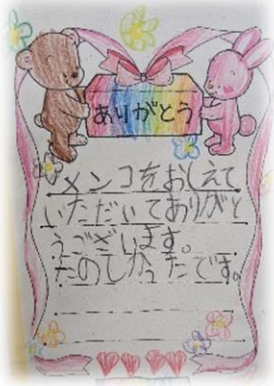 ありがとう
メンコをおしえて
いただいてありがと
うございます。
たのしかったです。